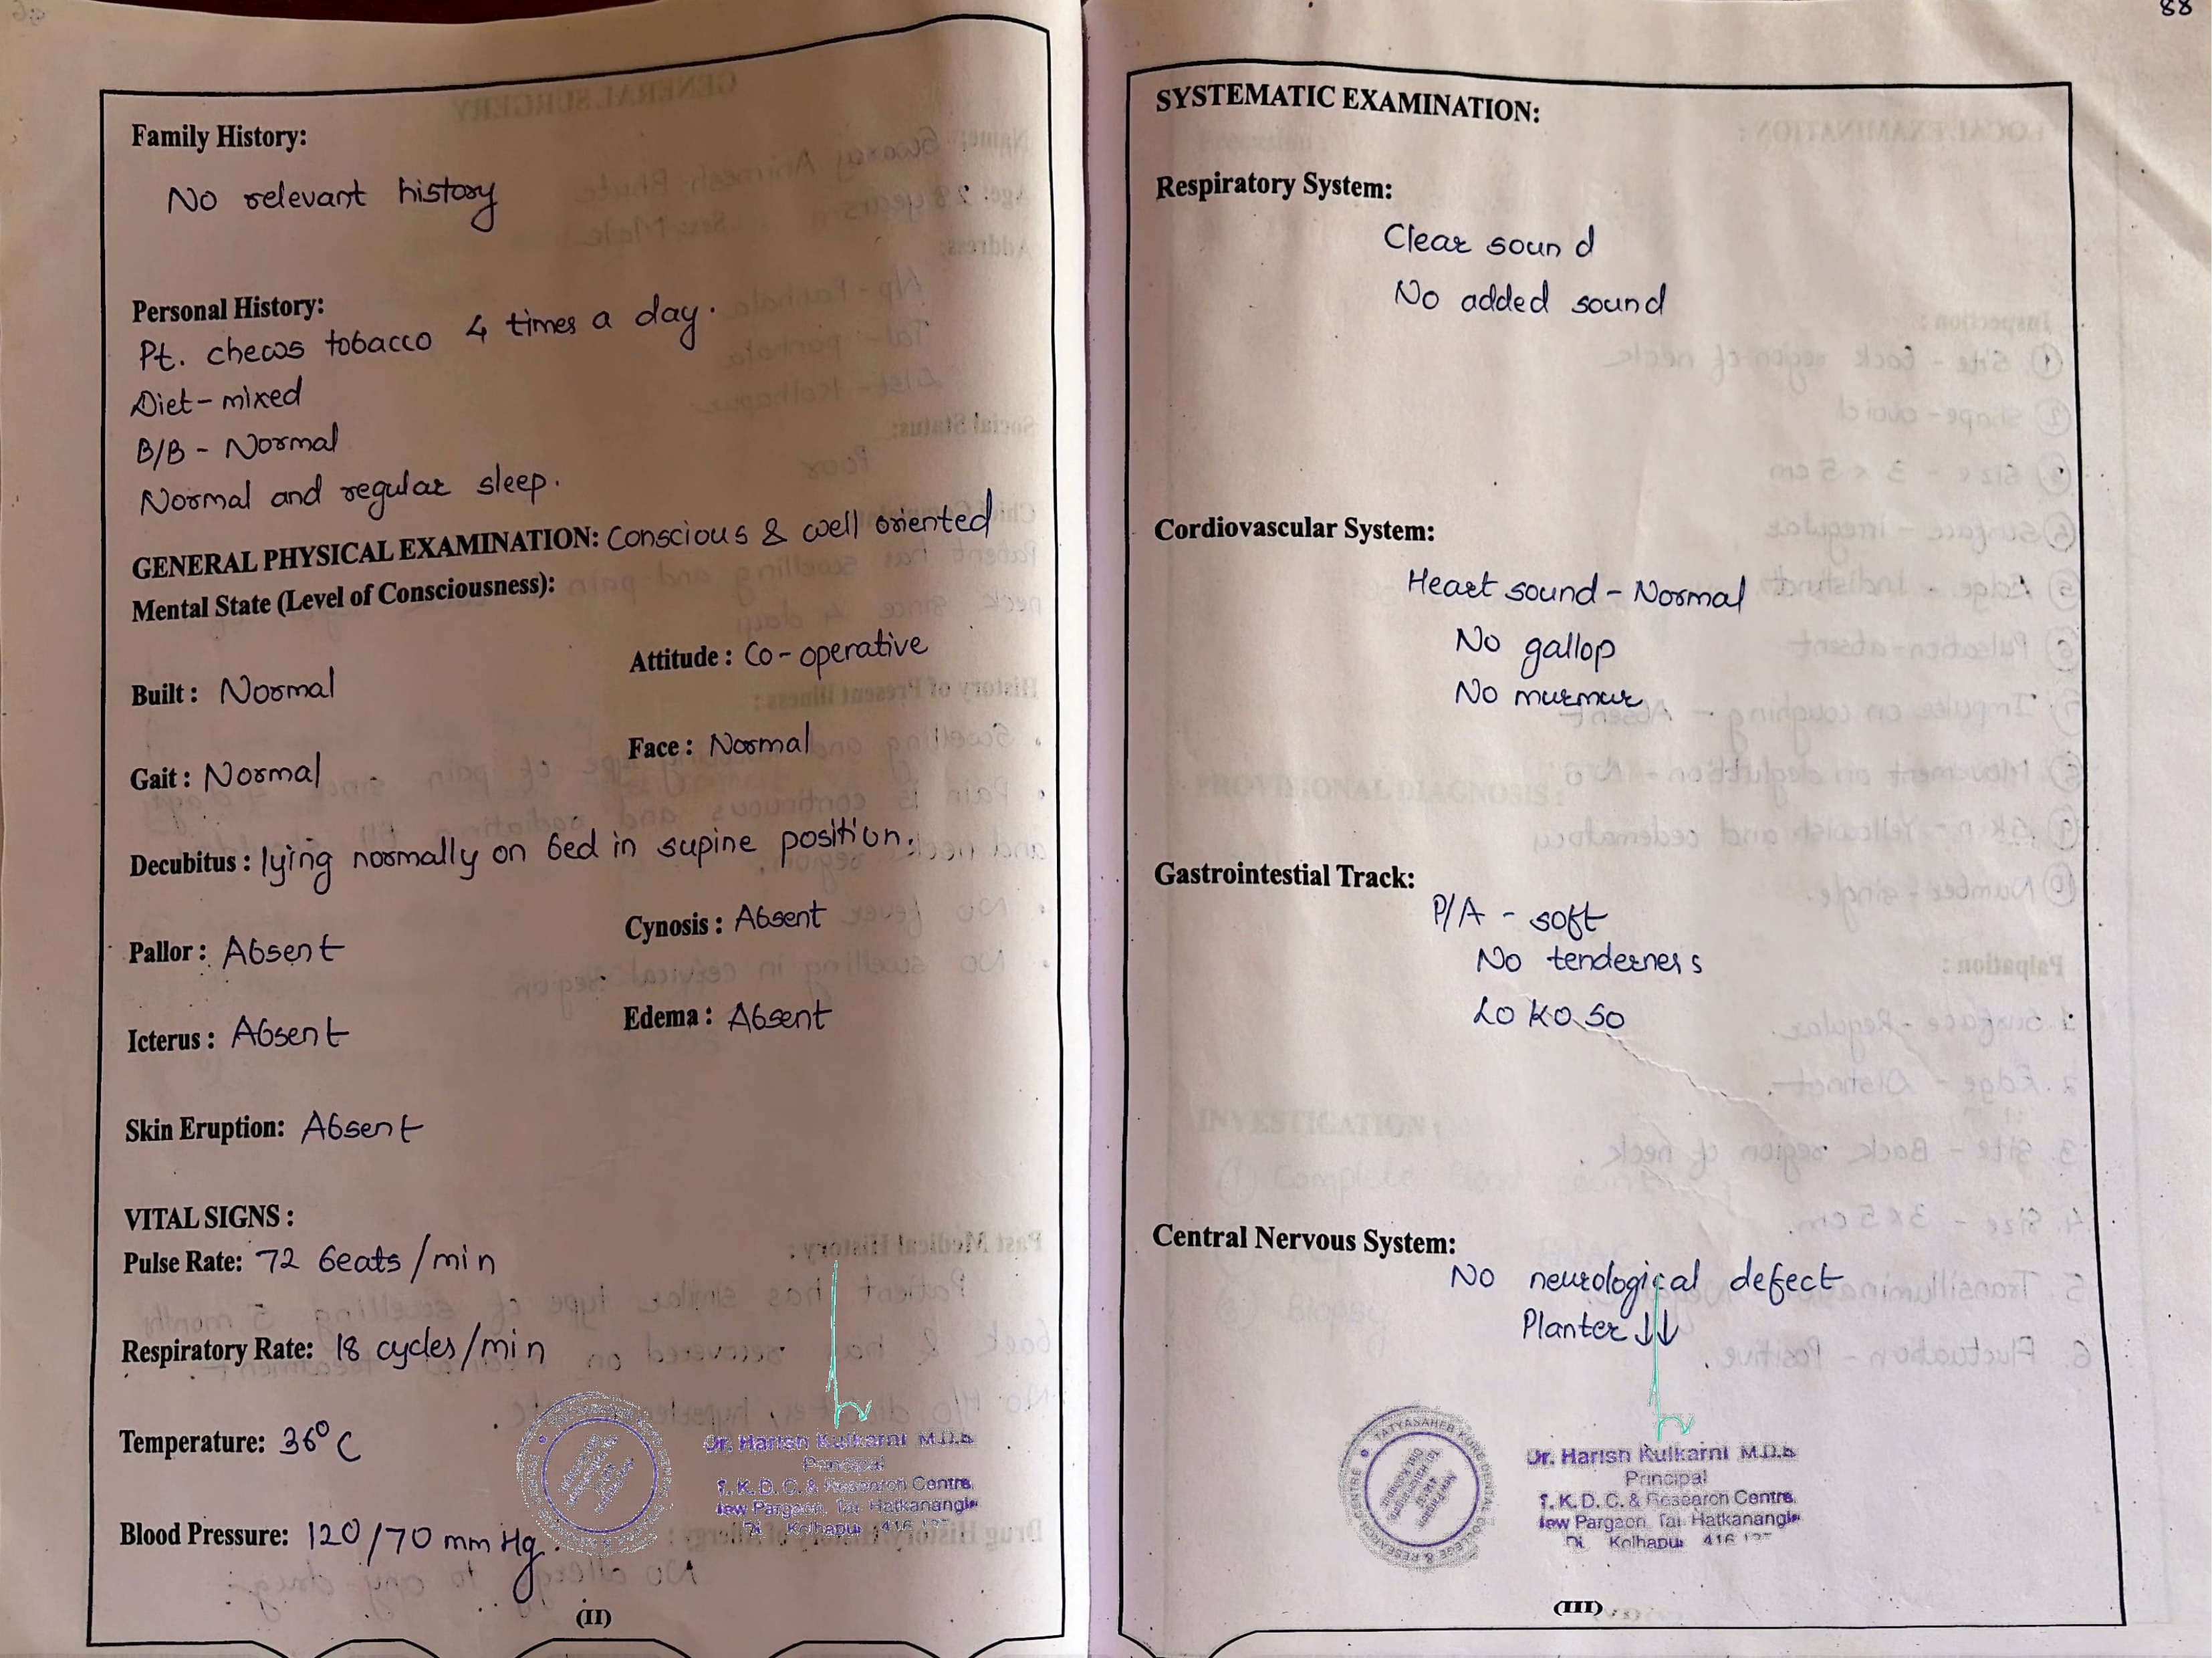 88
Family History:
No relevant history
Personal History:
Pt. chews tobacco 4 times a day.
Diet - mixed
B/B - Normal
Normal and regular sleep.
GENERAL PHYSICAL EXAMINATION: Conscious & well oriented
Mental State (Level of Consciousness):
Built : Normal
Attitude : Co-operative
Gait : Normal
Face : Normal
Decubitus : lying normally on bed in supine position.
Pallor : Absent
Cynosis : Absent
Icterus : Absent
Edema : Absent
Skin Eruption: Absent
VITAL SIGNS :
Pulse Rate: 72 beats/min
Respiratory Rate: 18 cycles/min
Temperature: 36°C
Blood Pressure: 120/70 mm Hg.
Dr. Harish Kulkarni M.D.S
Principal
T. K. D. C. & Research Centre,
New Pargaon, Tal. Hatkanangle
Di. Kolhapur 416
(II)
SYSTEMATIC EXAMINATION:
Respiratory System:
Clear sound
No added sound
Cordiovascular System:
Heart sound - Normal
No gallop
No murmur
Gastrointestial Track:
P/A - soft
No tenderness
L0 K0 S0
Central Nervous System:
No neurological defect
Planter ↓↓
TATYASAHEB KORE DENTAL COLLEGE & RESEARCH CENTRE
New Pargaon
Dr. Harish Kulkarni M.D.S
Principal
T. K. D. C. & Research Centre,
New Pargaon, Tal. Hatkanangle
Di. Kolhapur 416
(III)